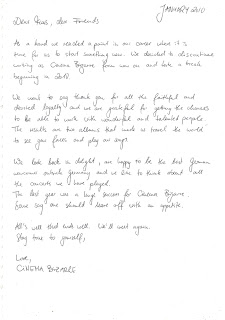 JANUARY 2010
Dear Fans, dear Friends
As a band we reached a point in our career when it's
time for us to start something new. We decided to discontinue
working as Cinema Bizarre from now on and take a break
beginning in 2010.
We want to say thank you for all the faithful and
devoted loyalty and we are grateful for getting the chance
to be able to work with wonderful and talented people.
The results are two albums that made us travel the world
to see your faces and play on stage.
We look back in delight, are happy to be the best German
newcomer outside germany and we love to think about all
the concerts we have played.
The last year was a huge success for Cinema Bizarre.
Some say one should leave off with an appetite.
All's well that ends well. We'll meet again.
Stay true to yourself,
Love,
CINEMA BIZARRE